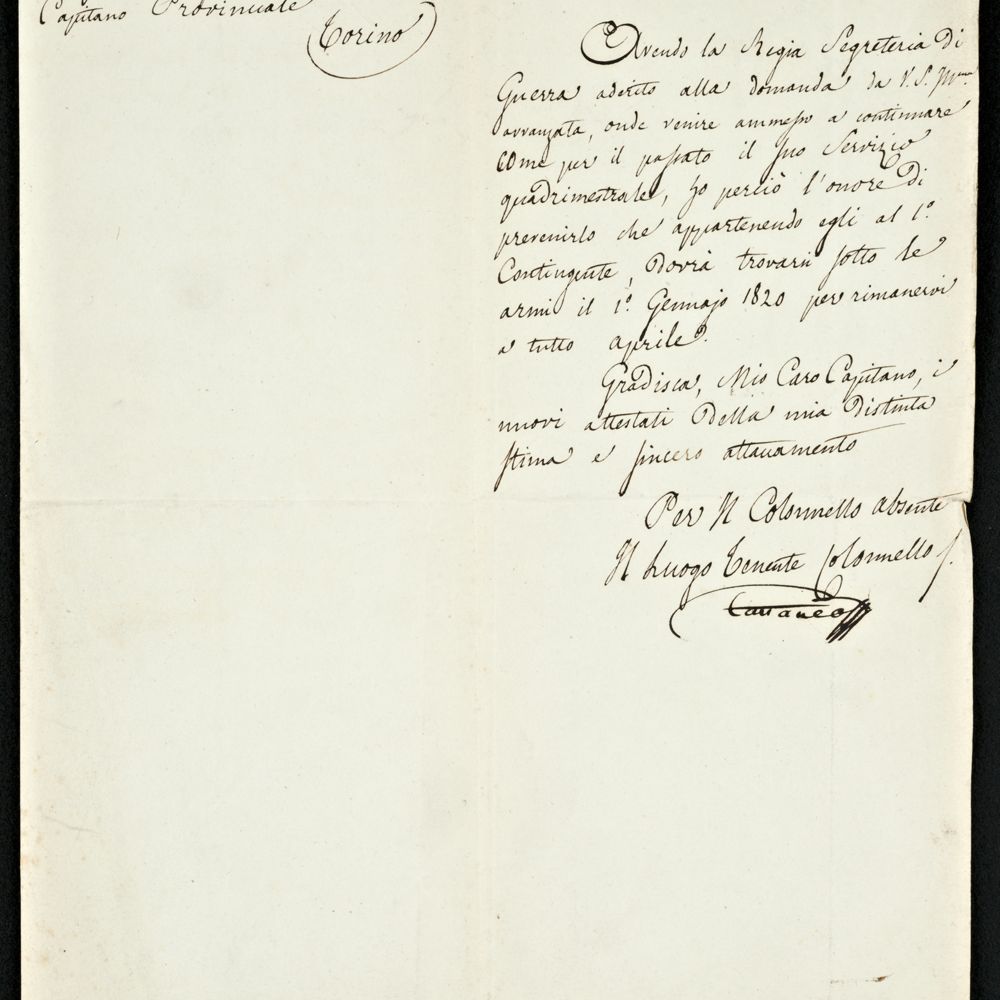 Capitano Provinciale
Torino
Avendo la Regia Segreteria di
Guerra aderito alla domanda da V. S. Ill.ma
avvanzata, onde venire ammesso a continuare
come per il passato il suo Servizio
quadrimestrale, ho perciò l'onore di
prevenirlo che appartenendo egli al 1.o
Contingente, dovrà trovarsi sotto le
armi il 1.o Gennajo 1820 per rimanervi
a tutto aprile.
Gradisca, Mio Caro Capitano, i
nuovi attestati della mia distinta
stima e sincero attaccamento
Per Il Colonnello absente
Il Luogo Tenente Colonnello